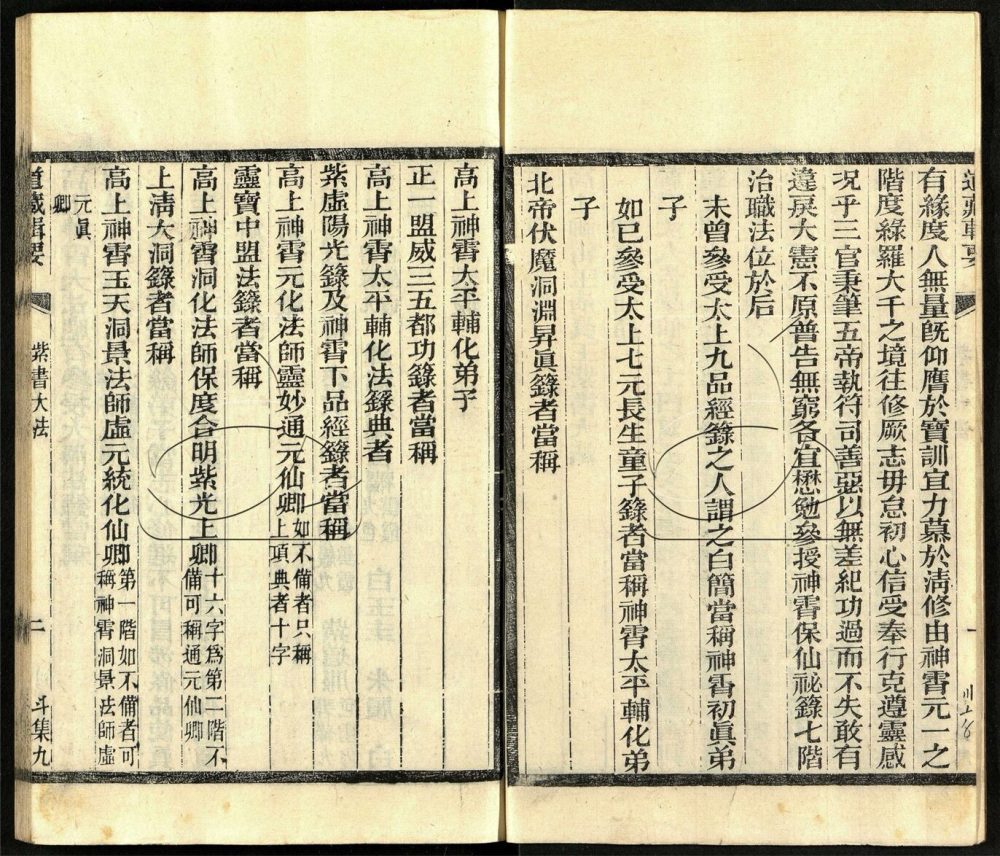 道藏輯要
有緣度人無量旣仰膺於寶訓宜力慕於淸修由神霄元一之
階度綠羅大千之境往修厥志毋怠初心信受奉行克遵靈感
况乎三官秉筆五帝執符司善惡以無差紀功過而不失敢有
違戾大憲不原普告無窮各宜懋勉參授神霄保仙祕籙七階
治職法位於后
未曾參受太上九品經籙之人謂之白簡當稱神霄初眞弟
子
如已參受太上七元長生童子籙者當稱神霄太平輔化弟
子
北帝伏魔洞淵昇眞籙者當稱
高上神霄太平輔化弟子
正一盟威三五都功籙者當稱
高上神霄太平輔化法籙典者
紫虛陽光籙及神霄下品經籙者當稱
高上神霄元化法師靈妙通元仙卿如不備者只稱
上項典者十字
靈寶中盟法籙者當稱
高上神霄洞化法師保度合明紫光上卿十六字爲第二階不
備可稱通元仙卿
上淸大洞籙者當稱
高上神霄玉天洞景法師虛元統化仙卿第一階如不備者可
稱神霄洞景法師虛
元眞
卿
道藏輯要
紫書大法
二
斗集九